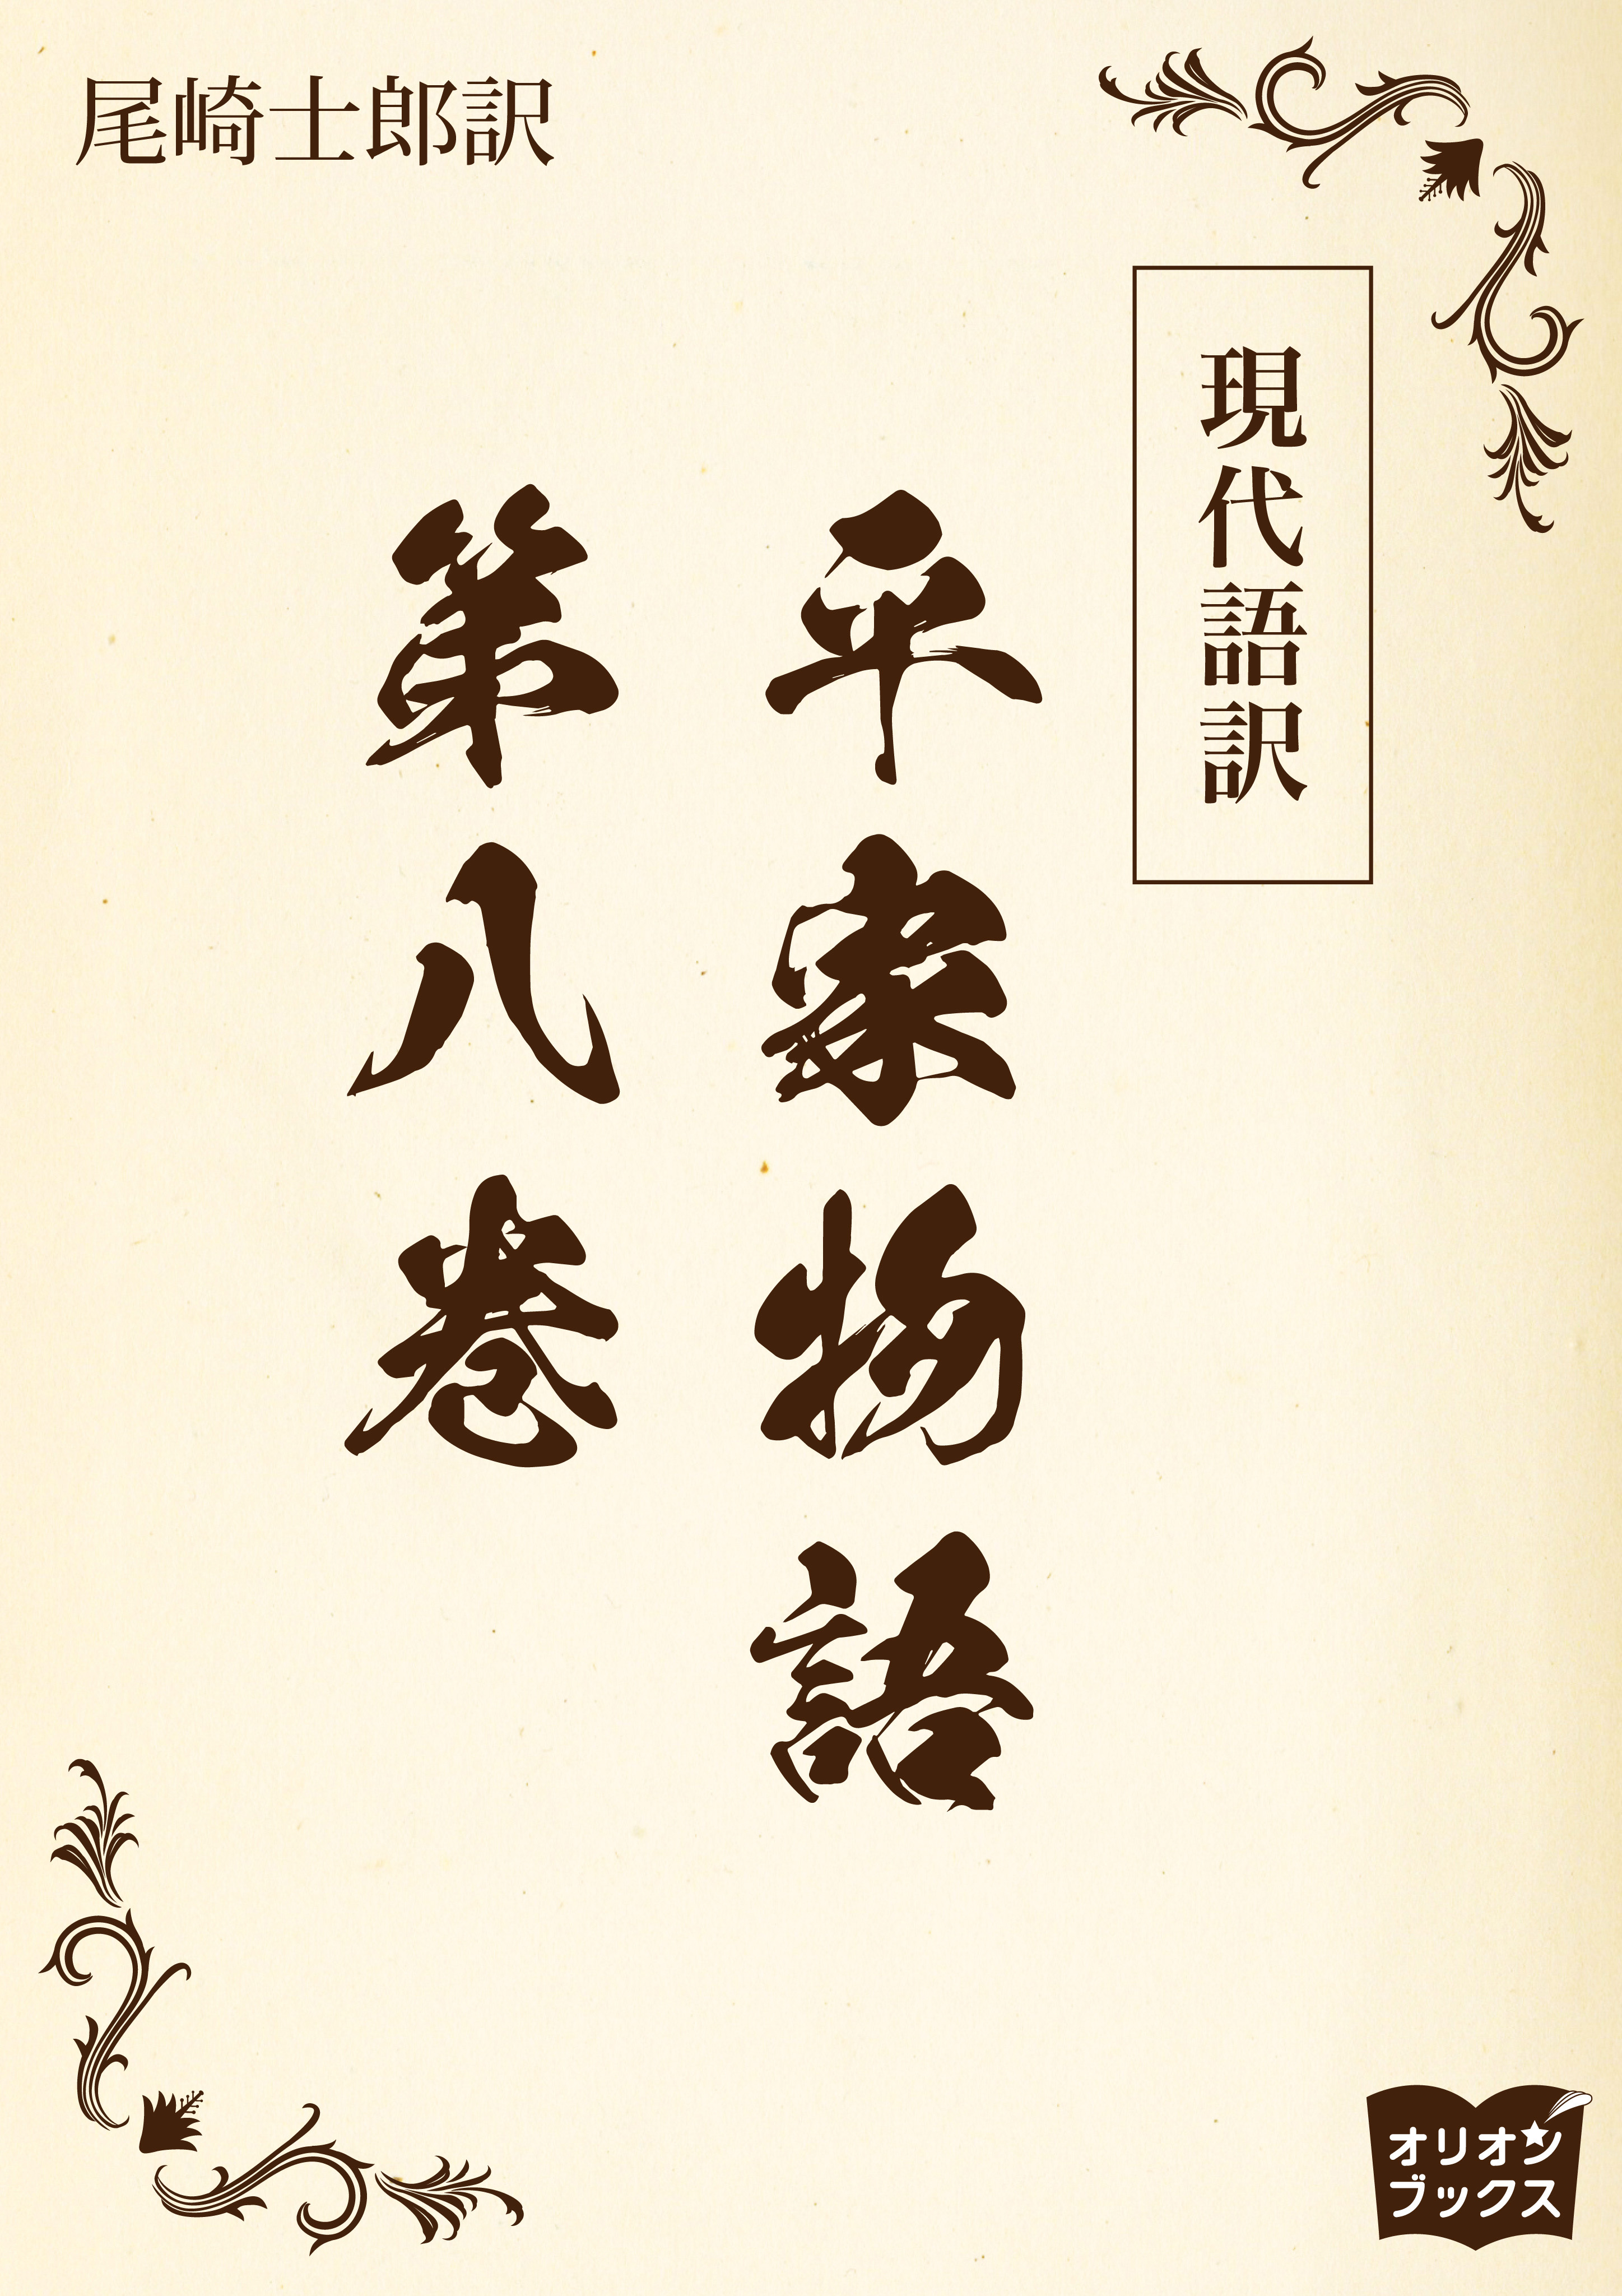 尾崎士郎訳
現代語訳
平家物語
第八巻
オリオン
ブックス